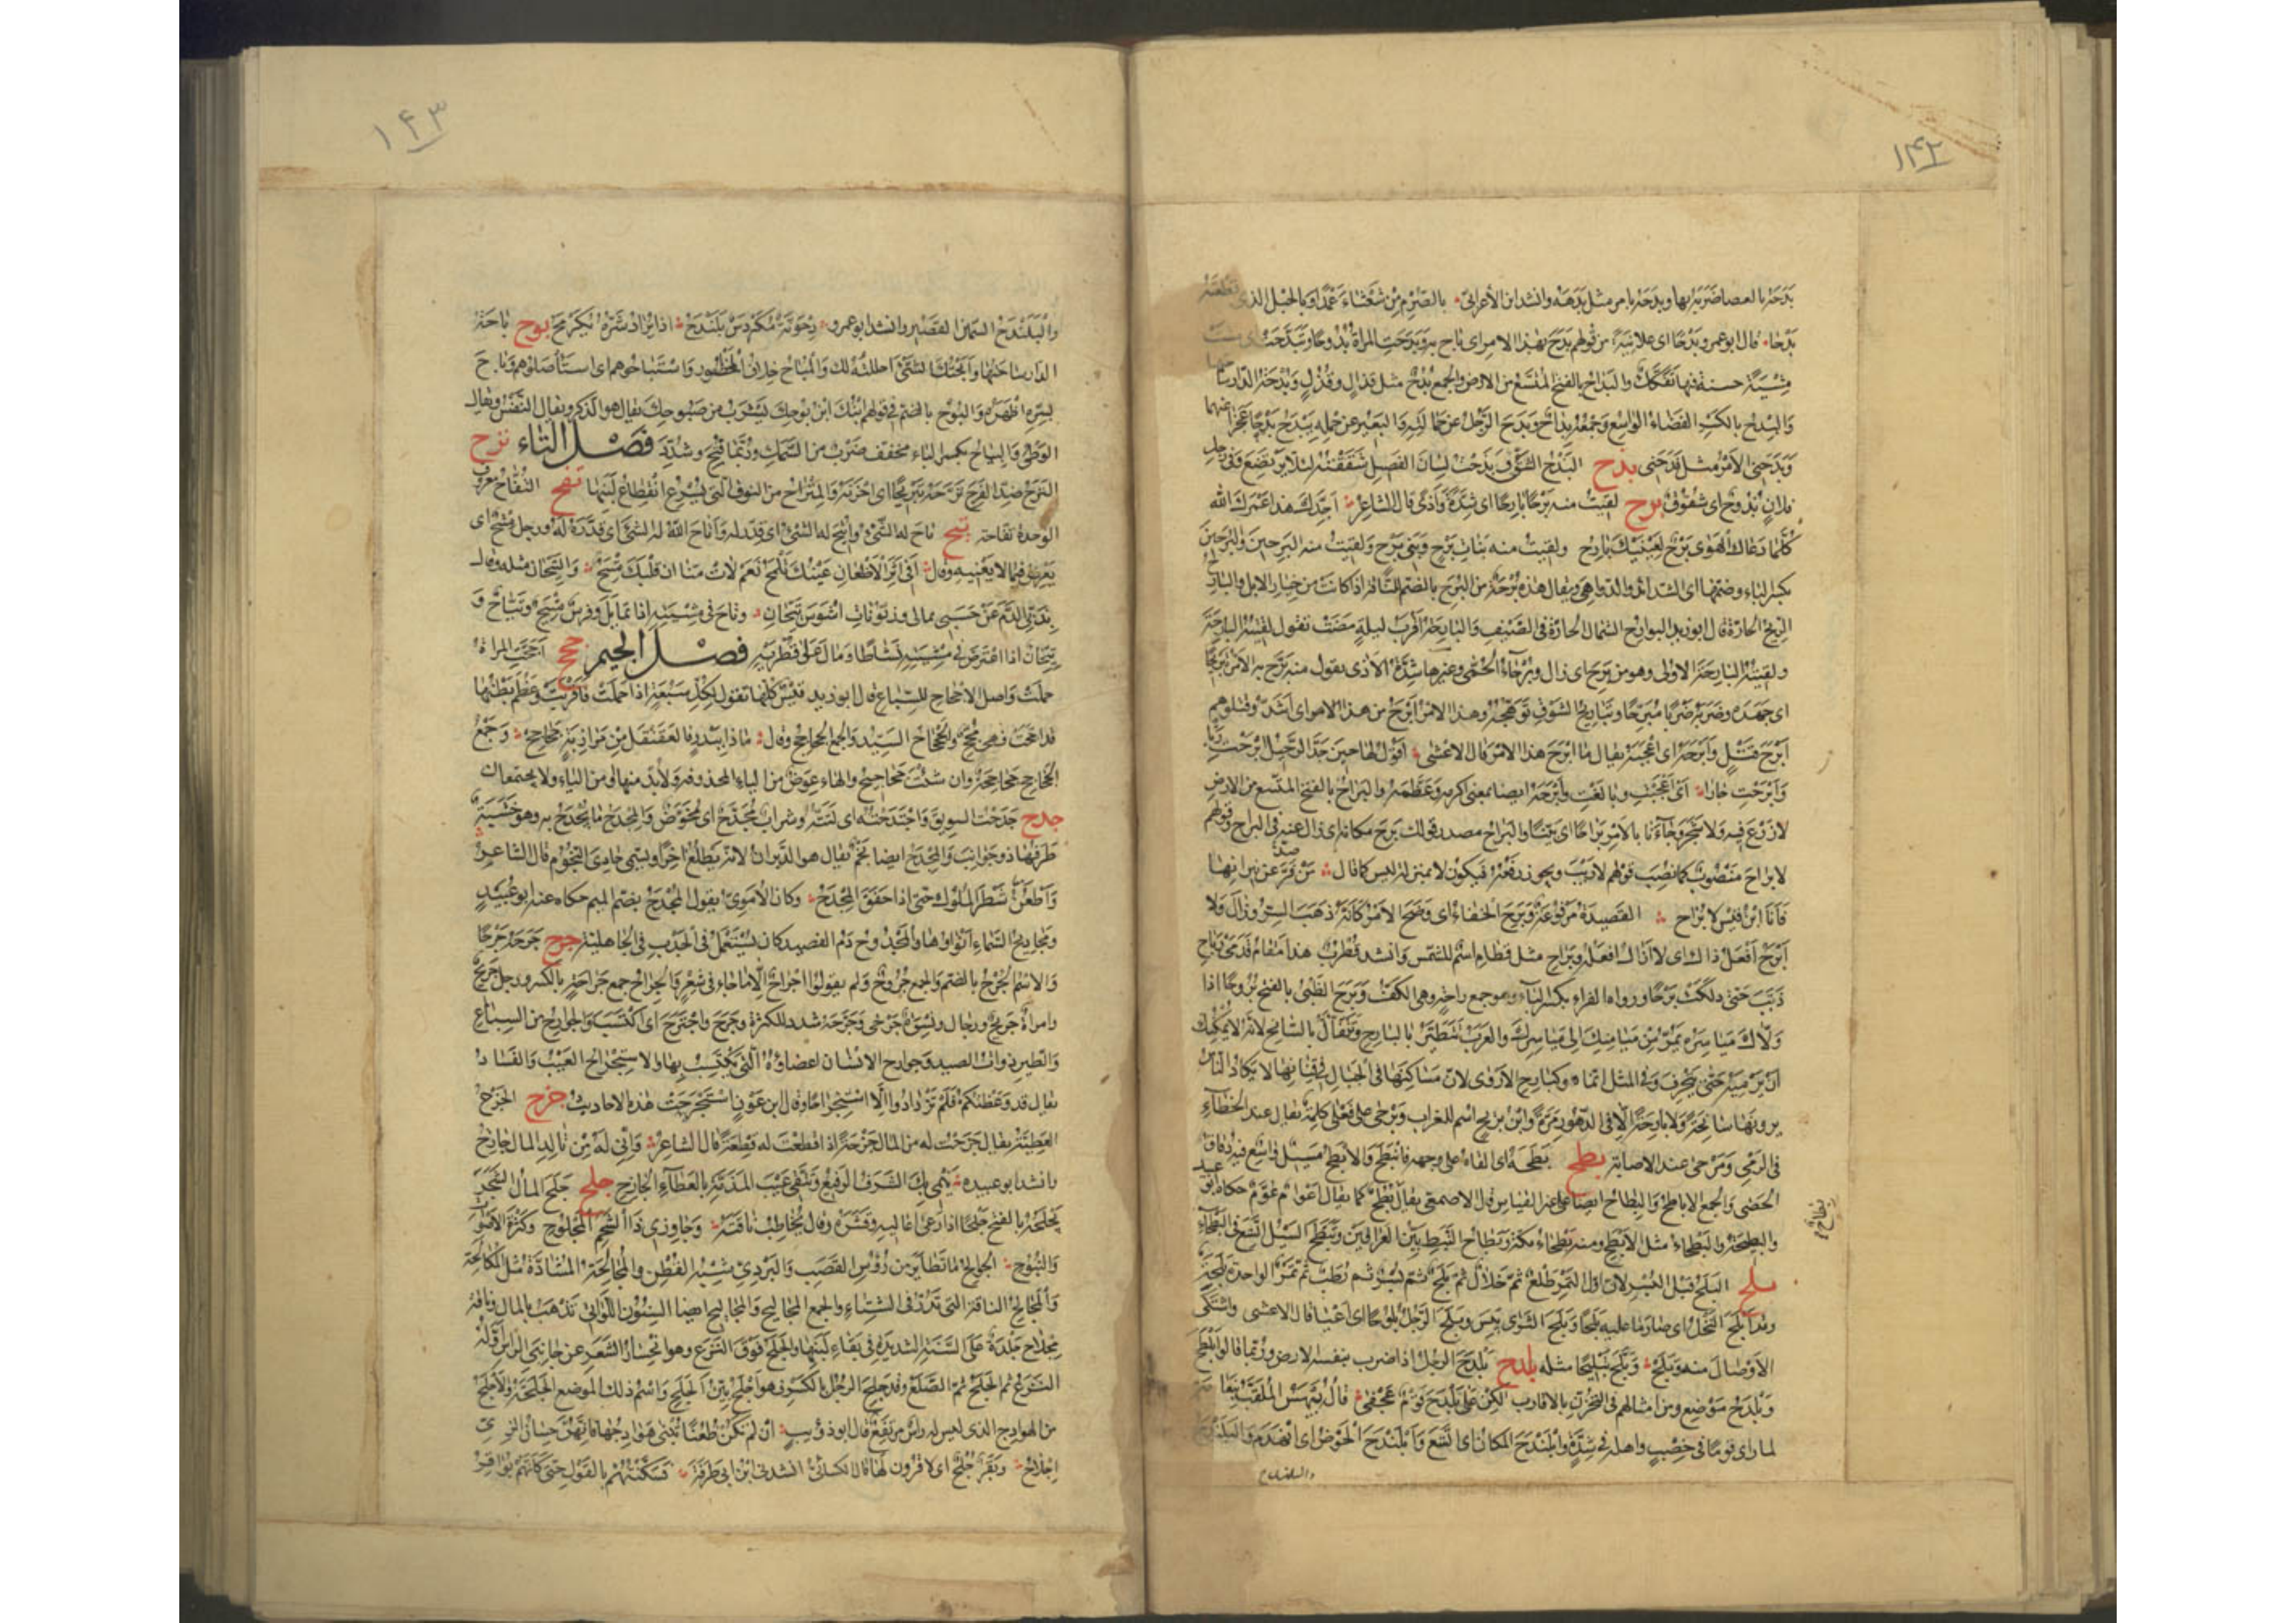 ١٤٢
بَدَحَهُ بالعصا ضَرَبَهُ بها وبدَحَهُ بامر مثل بَدَهَه وانشد ابن الأعرابىّ بالصَّرْمِ مِنْ شَعْثَاءَ عَمْدًا وبالحَبْل الذى تَقْطَعُهُ
بَدْحًا قال ابو عمرو بَدْحًا اى علانيةً من قولهم بَدَحَ بهذا الامر اى باح به وبَدَحَتِ المراةُ بُدُوحًا وتَبَدَّحَتْ اى مشت
مِشْيَةً حسنة فيها تَفَكُّكٌ والبَداحُ بالفتح المُتّسَعُ من الارض والجمع بُدُحٌ مثل قَذالٍ وقُذُلٍ وبُدْحَةُ الدّار ساحتها
والبِدْحُ بالكسر الفضاءُ الواسع وجمعه بِداحٌ وبَدَحَ الرّجلُ عن حَمالَتِهِ والبعيرُ عن حِمْلِه يَبْدَحُ بَدْحًا عَجَزَ عنهما
وبَدَحَنى الأمرُ مثل فَدَحَنى بذح البَذْحُ الشَّقُّ بَذَحْتُ لسانَ الفصيل شَقَقْتُهُ لئلا يرتضع وفى رجل
فلانٍ بُذُوحٌ اى شقوقٌ برح لقيتُ منه بَرْحًا بارحًا اى شِدَّةً وأذًى قال الشاعر أجِدَّكَ هذا عَمْرَكَ الله
كُلَّمَا دَعَاكَ الهَوَى بَرْحٌ لعَيْنَيْكَ بارِحُ ولقيتُ منه بناتِ بَرْحٍ وبَنِى بَرْحٍ ولقيتُ منه البِرَحِينَ والبُرَحِينَ
بكسر الباء وضمّها اى الشدائد والدواهى ويقال هذه بُرْحَةٌ من البُرَحِ بالضم للناقة اذا كانت من خيار الابل والبارِحُ
الرّيحُ الحارّة قال ابو زيد البوارح الشمال الحارّة فى الصّيف والبارحة أقرب ليلةٍ مضت تقول لقيته البارحة
ولقيته البارحة الاولى وهو من برح اى زال وبُرَحَاءُ الحُمَّى وغيرها شدّة الأذى تقول منه بَرَّحَ به الأمرُ تَبْرِيحًا
اى جَهَدَه وضربه ضربًا مُبَرِّحًا وتباريح الشوق تَوَهُّجُه وهذا الامر أبْرَحُ من هذا الامر اى أشدّ وقتلوهم
أبْرَحَ قَتْلٍ وأبْرَحَهُ اى أعجبه يقال ما أبرح هذا الامر قال الاعشى أقول لها حينَ جَدَّ الرّحيلُ أبْرَحْتِ رَبًّا
وأبْرَحْتِ جَارَا اى أعْجَبْتِ وبالغتِ وأبْرَحَهُ ايضا بمعنى أكرمه وعظّمه والبَراحُ بالفتح المتّسع من الارض
لا زرع فيه ولا شجر وجاءنا بالامر بَراحًا اى بَيّنًا والبَراحُ مصدر قولك بَرِحَ مكانَه اى زال عنه صار فى البراح وقولهم
لا بَراحَ منصوبٌ كما نُصب قولهم لا ريب ويجوز رفعه فيكون لا بمنزلة ليس كما قال مَنْ فَرَّ عن نيرانها
فأنا ابنُ قَيْسٍ لا بَرَاحُ القصيدة مرفوعة وبَرِحَ الخفاءُ اى وضح الأمر كأنّه ذهب السِّتر وزال ولا
أبرحُ أفعلُ ذاك اى لا أزالُ أفعله وبَراحِ مثل قَطامِ اسمٌ للشمس وانشد قطرب هذا مقامُ قَدَمَىْ رَباحِ
ذَبَّبَ حتى دَلَكَتْ بَرَاحِ ورواه الفراء بكسر الباء وهو جمع راحةٍ وهى الكفّ وبَرَحَ الظبىُ بالفتح بُرُوحًا اذا
وَلّاكَ مَيَاسِرَه يَمُرُّ من مَيَامِنِكَ الى مَيَاسِرِكَ والعرب تتطيّر بالبارح وتتفاءل بالسانح لانه لا يمكنك
أنْ ترميه حتى ينحرف وفى المثل انما هو كبارح الأرْوَى لانّ مساكنها فى الجبال فى قنانها لا يكاد الناس
يرونها سانحةً ولا بارحةً الّا فى الدهور مرّةً وابن بريح اسم للغراب وبَرْحَى على فَعْلَى كلمة تقال عند الخطاء
فى الرّمى ومَرْحَى عند الاصابة بطح بَطَحَهُ اى القاه على وجهه فانبطح والأبطحُ مسيلٌ واسعٌ فيه دُقاق
الحصى والجمع الاباطح والبِطاح ايضا على غير القياس قال الاصمعى يقال بِطاحٌ بُطَّحٌ كما يقال أعوامٌ عُوَّمٌ حكاه ابو عبيد
والبطيحة والبطحاء مثل الأبطح ومنه بطحاءُ مكّة وبطائح النَّبَطِ بين العراقين وتَبَطَّحَ السيلُ اتّسع فى البطحاء
بلح البَلَحُ قبل البُسر لانّ اوّل التمر طَلْعٌ ثمّ خَلالٌ ثمّ بَلَحٌ ثمّ بُسْرٌ ثم رُطَبٌ ثمّ تَمْرٌ الواحدة بَلَحَةٌ
وقد أبلح النخلُ اى صار ما عليه بلحًا وبَلَحَ الثرى يَبِسَ وبَلَحَ الرّجلُ بُلوحًا اى أعيا قال الاعشى واشتكى
الأوصالَ منه وبَلَحْ وبَلَّحَ تَبْلِيحًا مثله بلدح بَلْدَحَ الرجل اذا ضرب بنفسه الارض وربّما قالوا بَلْطَحَ
وبَلْدَحُ موضع ومن امثالهم فى التحزّن بالاقارب لكنْ على بَلْدَحَ قومٌ عَجْفَى قاله بَيْهَسٌ الملقّب بنعامة
لما راى قومًا فى خصبٍ واهله فى شدّةٍ وابلندح المكان اى اتّسع وابلندح الحوض اى انهدم والبلندح
١٤٣
والبَلَنْدَحُ السّمين القصير وانشد ابو عمرو دِحْوَنَّةٌ مُكَرْدَسٌ بَلَنْدَحُ اذا يُرادُ شَدُّهُ يُكَرْمِحُ بوح باحَةُ
الدار ساحتها وأبحتك الشىءَ احللته لك والمباح خلاف المحظور واستباحوهم اى استأصلوهم وباحَ
بسرّه أظهره والبُوحُ بالضم فى قولهم ابنك ابن بُوحِكَ يشرب من صَبُوحِك يقال هو الذَّكَر ويقال النفس ويقال
الوطى والبِياحُ بكسر الباء مخفّف ضربٌ من السّمك وربّما فتح وشدّد فصل التاء ترح
التَّرَحُ ضدّ الفرح تَرَّحَهُ تتريحًا اى احزنه والمِتْراحُ من النوق التى يسرع انقطاع لبنها تفح التفاح معروف
الواحدة تفاحة تيح تاحَ له الشىءُ وأُتيح له الشىءُ اى قُدّر له وأتاح الله له الشىءَ اى قدّره له ورجل مِتْيَحٌ اى
يعرض فيما لا يعنيه وقال أفى أثَرِ الأظعانِ عَيْنُكَ تَلْمَحُ نَعَمْ لاتَ هَنّا انّ قلبك مِتْيَحُ والتَّيّحانُ مثله وقال
بِذَبِّى الذَّمَّ عَنْ حَسَبِى بمالى وزَبُّوناتِ أشْوَسَ تَيَّحَانِ وتاحَ فى مشيته اذا تمايل وفرسٌ مِتْيَحٌ وتَيّاحٌ و
تَيَّحانٌ اذا اعترض فى مشيته نشاطًا ومال على قُطْرَيه فصل الجيم جحح أجَحَّتِ المراةُ
حملت واصل الاجحاح للسباع قال ابو زيد قيسٌ كلّها تقول لكلّ سَبُعَةٍ اذا حملت فأقربت وعظم بطنها
قد أجَحَّتْ فهى مُجِحٌّ والجَحْجاحُ السيّد والجمع الجحاجح وقال ماذا بِبَدْرٍ فالعَقَنْقَلِ مِنْ مَرَازِبَةٍ جَحَاجِحْ وجمعُ
الجحاجح جحاجحة وان شئت جحاجيح والهاء عوض من الياء المحذوفة ولا بدّ منها او من الياء ولا يجتمعان
جدح جَدَحْتُ السويق واجتدحته اى لتته وشراب مُجَدَّحٌ اى مُخَوَّضٌ والمِجْدَحُ ما يُجدح به وهو خشبةٌ
طرفها ذو جوانب والمِجدح ايضا نجم يقال هو الدَّبَران لانه يطلع اخرا ويسمّى حادى النجوم قال الشاعر
وأطْعَنُ شَطْرَ المُلُوكِ حتى اذا خَفَقَ المِجْدَحُ وكان الأمَوِىُّ يقول المُجْدَحُ بضمّ الميم حكاه عنه ابو عبيد
ومجاديح السماء انواؤها والمجدوح دم الفصيد كان يُستعمل فى الجدب فى الجاهلية جرح جَرَحَهُ جَرْحًا
والاسم الجُرْحُ بالضم والجمع جُروحٌ ولم يقولوا أجراح الّا ما جاء فى شعرٍ والجِراحُ جمع جِراحةٍ بالكسر ورجل جريحٌ
وامراةٌ جريحٌ ورجال ونسوة جَرْحَى وجَرَّحَهُ شدّد للكثرة وجَرَحَ واجترح اى اكتسب والجوارح من السباع
والطير ذوات الصيد وجوارح الانسان اعضاؤه التى يكتسب بها والاستجراح العيب والفساد
يقال قد وعظتكم فلم تزدادوا الّا استجراحًا وقال ابن عونٍ استجرحت هذه الاحاديث جزح الجَزْحُ
العطيّة يقال جَزَحْتُ له من المال جَزْحَةً اذا قطعت له قطعةً قال الشاعر وإنّى له مِنْ تالِدِ المالِ جازِحُ
وانشد ابو عبيدة يَنْمِى بك الشرفُ الرفيعُ وتَتّقى عَيْبَ المَذَمّةِ بالعطاءِ الجازِحِ جلح جَلَحَ المالُ الشجر
يجلحه بالفتح جلحًا اذا رعى اعاليه وقشره وقال يخاطب ناقته وجاوزى ذا السَّحَمِ المَجْلُوحِ وكثرةَ الأصواتِ
والنُّبُوحِ الجوالح ما تطاير من رؤس القصب والبردىّ شبه القطن والمجالحة المشادّة مثل المكالحة
والمجالح الناقة التى تدرّ فى الشتاء والجمع المجاليح والمجاليح ايضا السنون اللواتى تذهب بالمال وناقة
مِجلاح جلدة على السنة الشديدة فى بقاء لبنها والجَلَحُ فوق النَّزَع وهو انحسار الشعر عن جانبى الراس أوّله
النَّزَعُ ثم الجَلَحُ ثمّ الصَّلَعُ وقد جَلِحَ الرجل بالكسر فهو أجلح بيّن الجلح واسم ذلك الموضع الجَلَحَة والأجلحُ
من الهوادج الذى ليس له راس مرتفع قال ابو ذؤيب إنْ لم تكن ظُعُنًا تُبْنَى هَوادِجُها فانّهنّ حِسانُ الزِّىِّ
أجْلاحُ وبقر جُلْحٌ اى لا قرون لها قال الكسائى انشدنى ابن ابى طرفة فسَكَّنْتُهُمْ بالقَوْلِ حتى كأنّهم بَواقِرُ